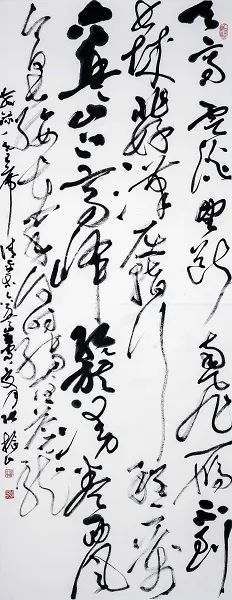 天高雲淡望斷南飛雁不到
長城非好漢屈指行程二萬
六盤山上高峰紅旗漫卷西風
今日長纓在手何時縛住蒼龍
清平樂六盤山